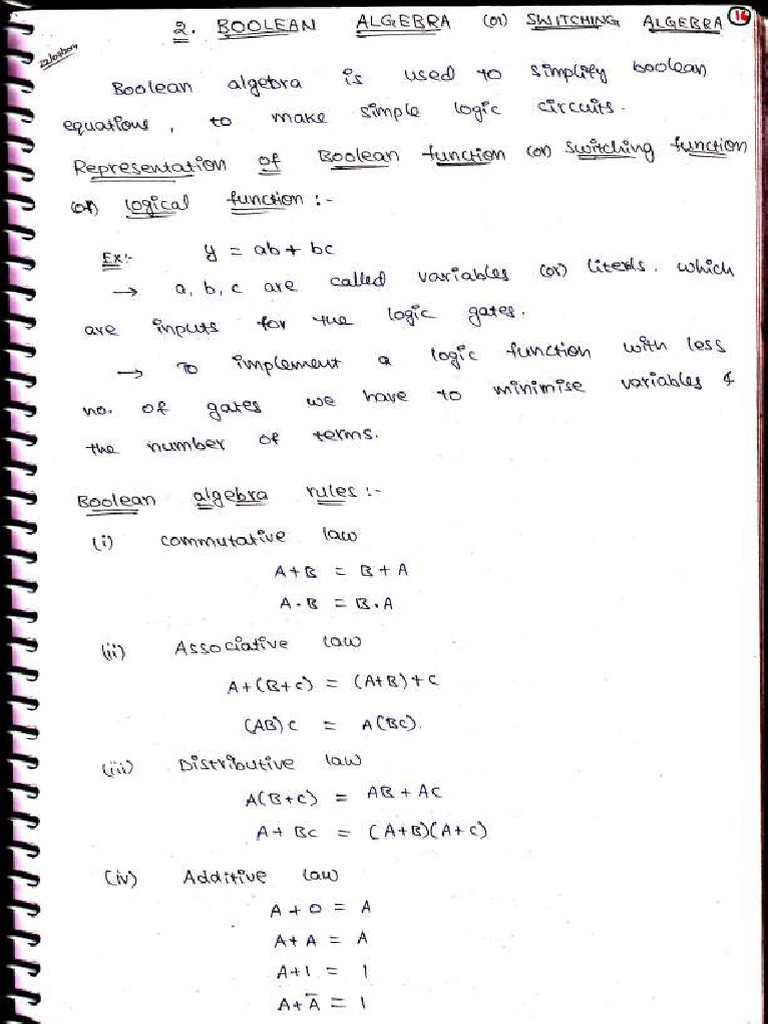 2. BOOLEAN ALGEBRA (or) SWITCHING ALGEBRA 16
Boolean algebra is used to simplify boolean
equations, to make simple logic circuits.
Representation of Boolean function (or) switching function
(or) logical function :-
Ex:- y = ab + bc
→ a, b, c are called variables (or) literls. which
are inputs for the logic gates.
→ To implement a logic function with less
no. of gates we have to minimise variables &
the number of terms.
Boolean algebra rules :-
(i) Commutative law
A+B = B+A
A·B = B·A
(ii) Associative law
A+(B+C) = (A+B)+C
(AB)C = A(BC).
(iii) Distributive law
A(B+C) = AB + AC
A+BC = (A+B)(A+C)
(iv) Additive law
A+0 = A
A+A = A
A+1 = 1
A+Ā = 1